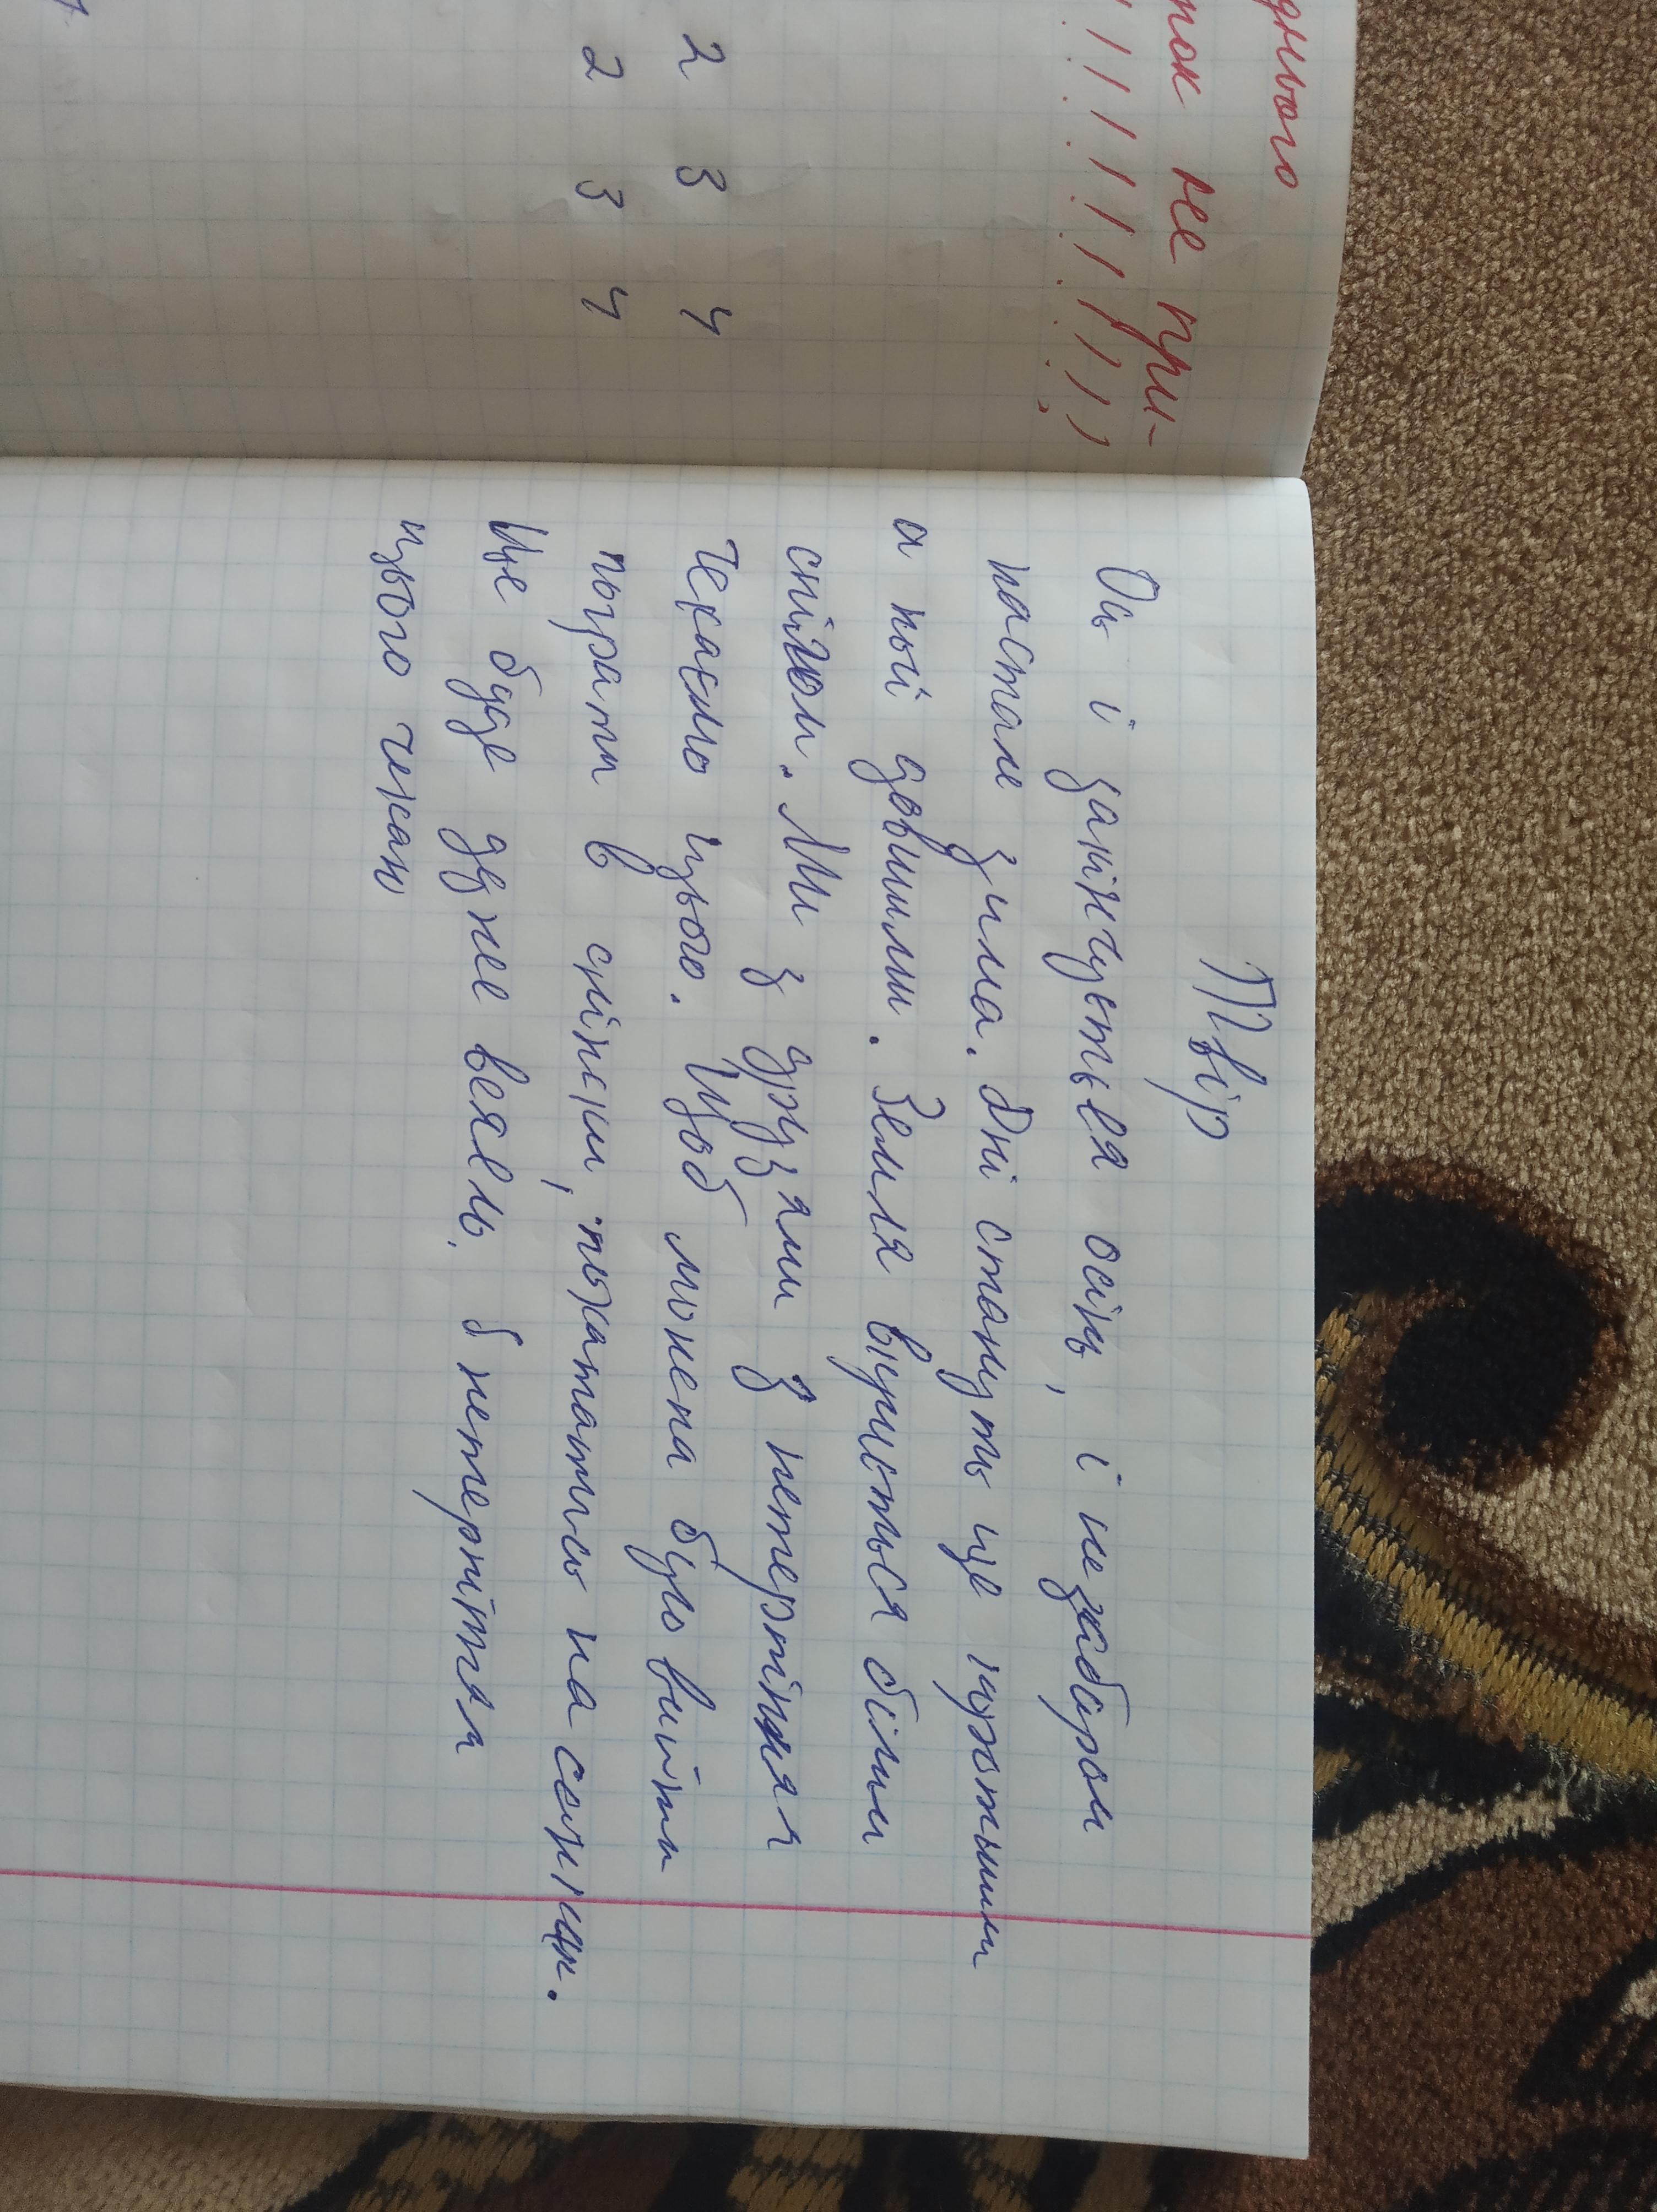 дного
ток не при-
! ! ! ! ! ! ! ! !
2 3 4
2 3 4
Твір
Ось і закінчується осінь, і незабаром
настане зима. Дні стануть ще холоднішими
а ночі довшими. Земля вкриється білим
снігом. Ми з друзями з нетерпіння
чекаємо цього. Щоб можна було вийти
пограти в сніжки, покататись на санчатах.
Це буде дуже весело. З нетерпіттям
цього чекаю